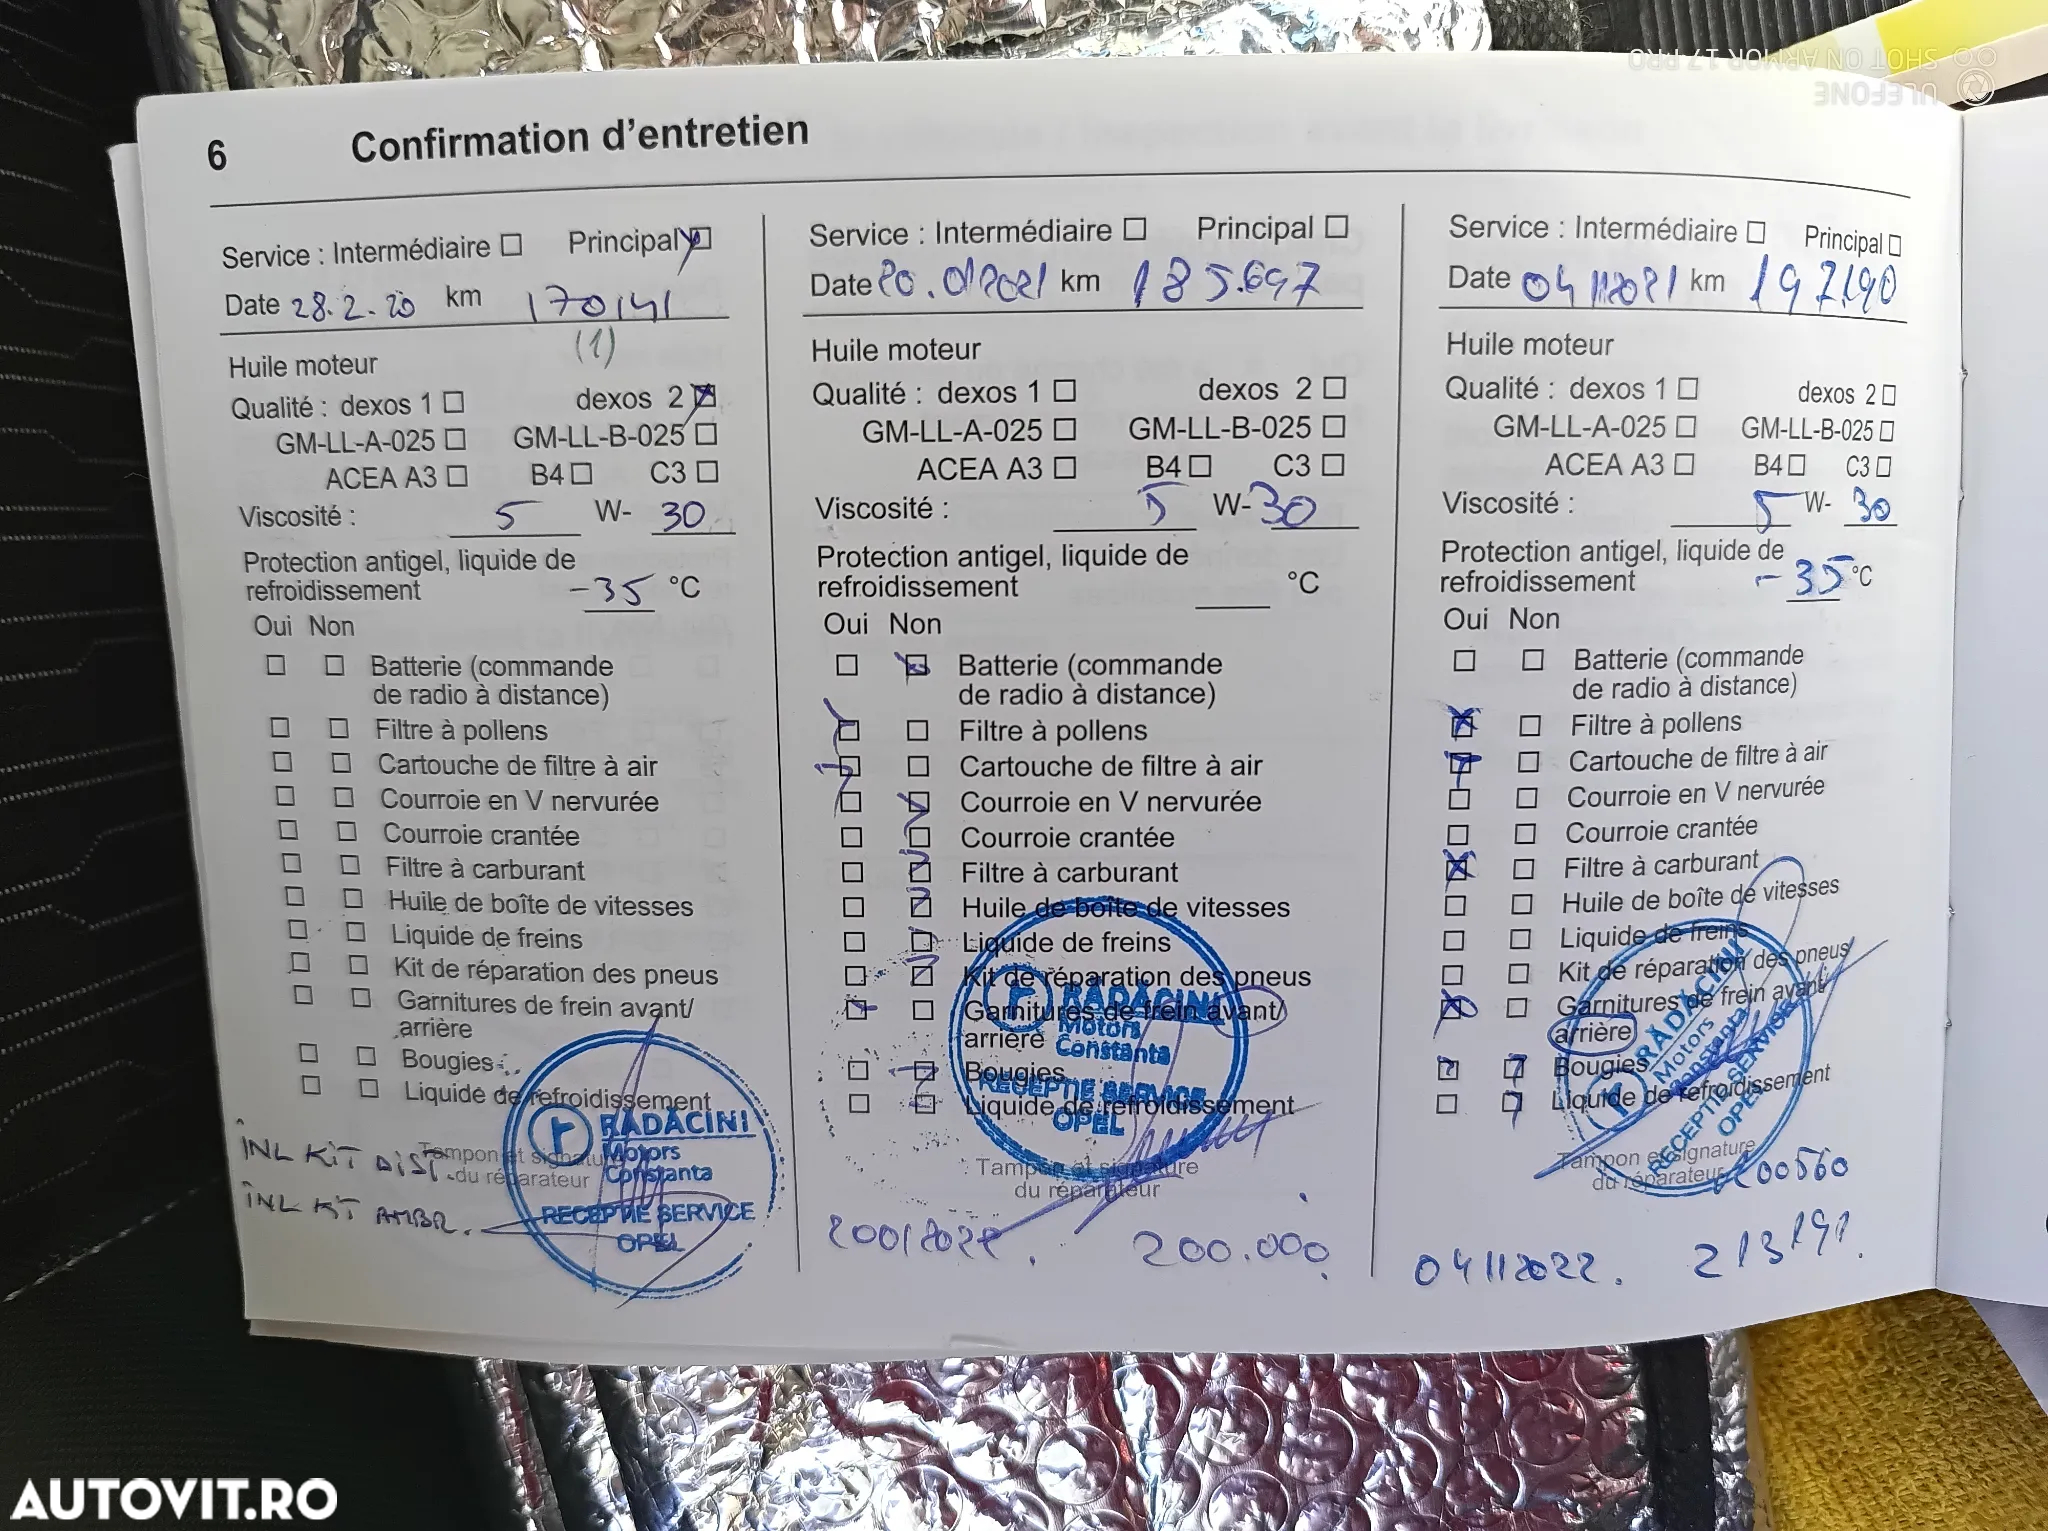 6 Confirmation d'entretien
Service : Intermédiaire Principal
Date 28.2.20 km 170141
(1)
Huile moteur
Qualité : dexos 1 dexos 2
GM-LL-A-025 GM-LL-B-025
ACEA A3 B4 C3
Viscosité : 5 W- 30
Protection antigel, liquide de
refroidissement -35 °C
Oui Non
Batterie (commande
de radio à distance)
Filtre à pollens
Cartouche de filtre à air
Courroie en V nervurée
Courroie crantée
Filtre à carburant
Huile de boîte de vitesses
Liquide de freins
Kit de réparation des pneus
Garnitures de frein avant/
arrière
Bougies
Liquide de refroidissement
ÎNL KIT DIST.
ÎNL KIT AMBR.
Tampon et signature
du réparateur
RĂDĂCINI
Motors
Constanta
RECEPTIE SERVICE
OPEL
Service : Intermédiaire Principal
Date 20.012021 km 185.697
Huile moteur
Qualité : dexos 1 dexos 2
GM-LL-A-025 GM-LL-B-025
ACEA A3 B4 C3
Viscosité : 5 W-30
Protection antigel, liquide de
refroidissement °C
Oui Non
Batterie (commande
de radio à distance)
Filtre à pollens
Cartouche de filtre à air
Courroie en V nervurée
Courroie crantée
Filtre à carburant
Huile de boîte de vitesses
Liquide de freins
Kit de réparation des pneus
Garnitures de frein avant/
arrière
Bougies
Liquide de refroidissement
RĂDĂCINI
Motors
Constanta
RECEPTIE SERVICE
OPEL
Tampon et signature
du réparateur
20012022. 200.000
Service : Intermédiaire Principal
Date 04112021 km 197.190
Huile moteur
Qualité : dexos 1 dexos 2
GM-LL-A-025 GM-LL-B-025
ACEA A3 B4 C3
Viscosité : 5 W- 30
Protection antigel, liquide de
refroidissement -35 °C
Oui Non
Batterie (commande
de radio à distance)
Filtre à pollens
Cartouche de filtre à air
Courroie en V nervurée
Courroie crantée
Filtre à carburant
Huile de boîte de vitesses
Liquide de freins
Kit de réparation des pneus
Garnitures de frein avant/
arrière
Bougies
Liquide de refroidissement
RĂDĂCINI
Motors
Constanta
RECEPTIE SERVICE
OPEL
Tampon et signature
du réparateur
200560
04112022. 213191.
ULEFONE
SHOT ON ARMOR 17 PRO
AUTOVIT.RO